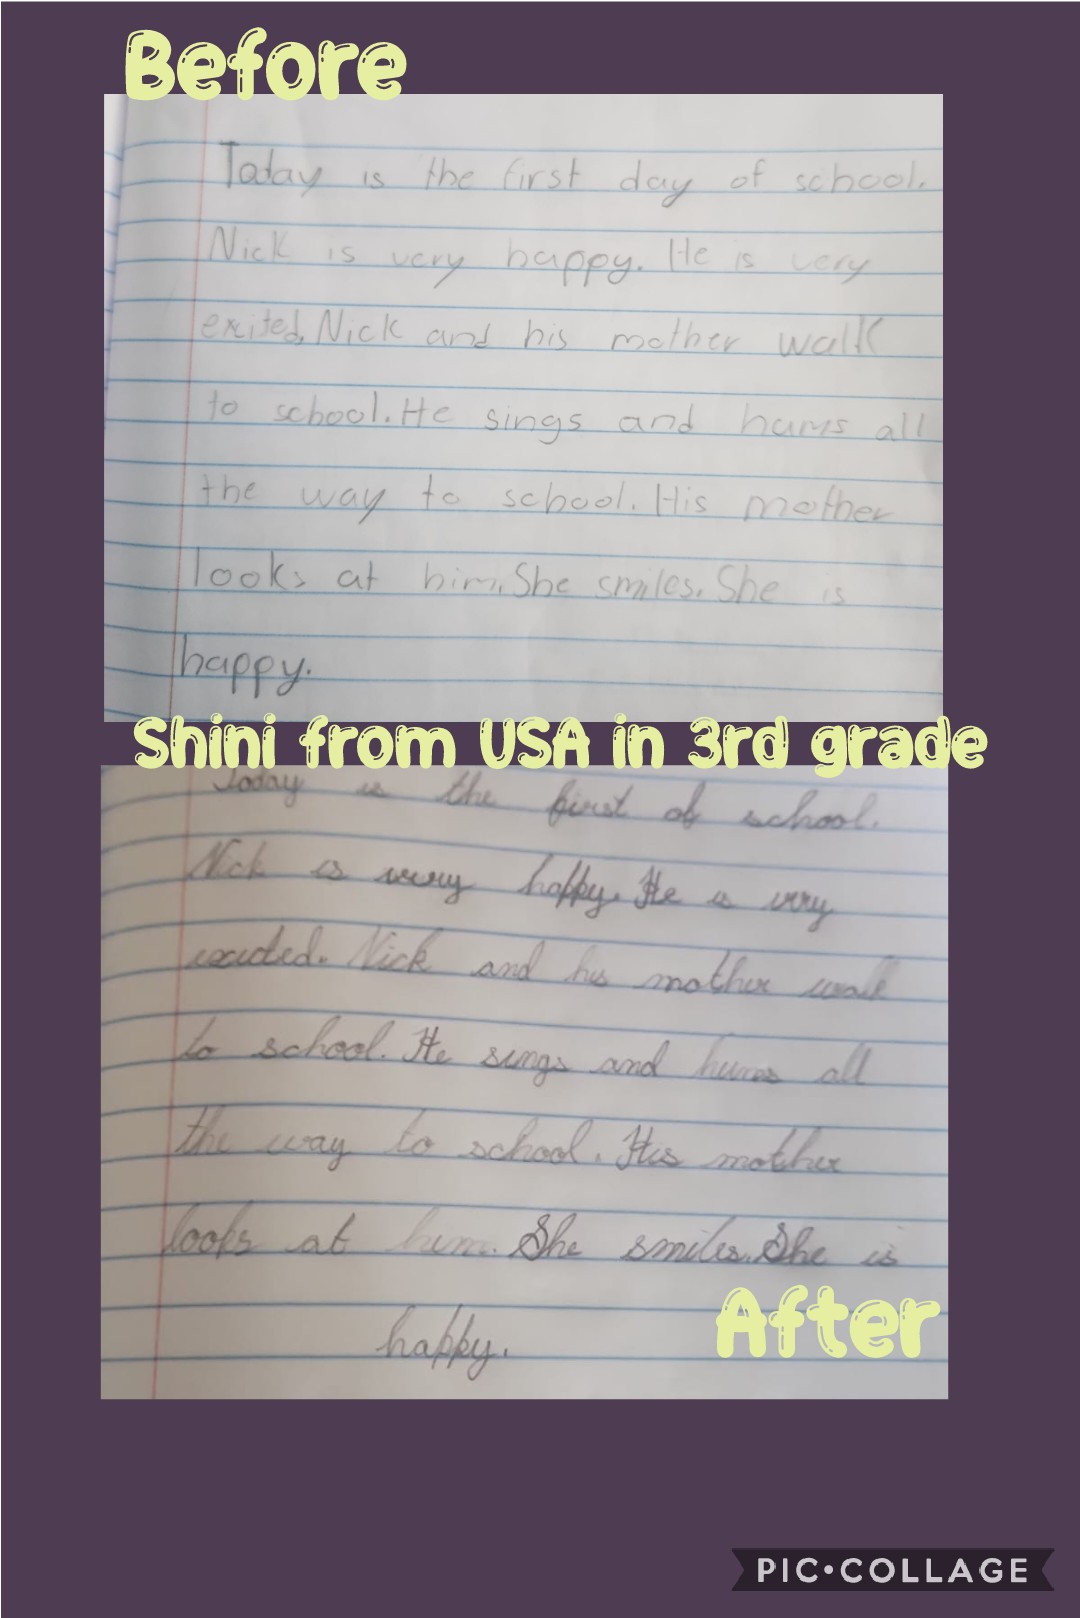 Before
Today is the first day of school.
Nick is very happy. He is very
exited. Nick and his mother walk
to school. He sings and hums all
the way to school. His mother
looks at him. She smiles. She is
happy.
Shini from USA in 3rd grade
Today is the first of school.
Nick is very happy. He is very
excited. Nick and his mother walk
to school. He sings and hums all
the way to school. His mother
looks at him. She smiles. She is
happy.
After
PIC•COLLAGE